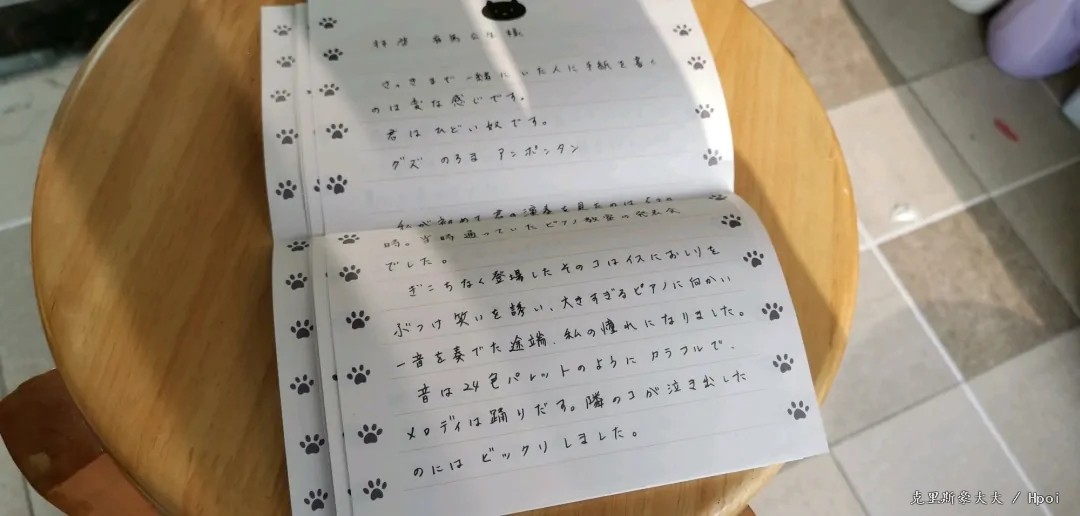 拝啓 有馬公生様
さっきまで一緒にいた人に手紙を書く
のは変な感じです。
君はひどい奴です。
グズ のろま アンポンタン
私が初めて君の演奏を見たのは5つの
時。当時通っていたピアノ教室の発表会
でした。
ぎこちなく登場したそのコはイスにおしりを
ぶつけ笑いを誘い、大きすぎるピアノに向かい
一音を奏でた途端、私の憧れになりました。
音は24色パレットのようにカラフルで、
メロディは踊りだす。隣のコが泣き出した
のにはビックリしました。
克里斯豪夫夫 / Hpoi